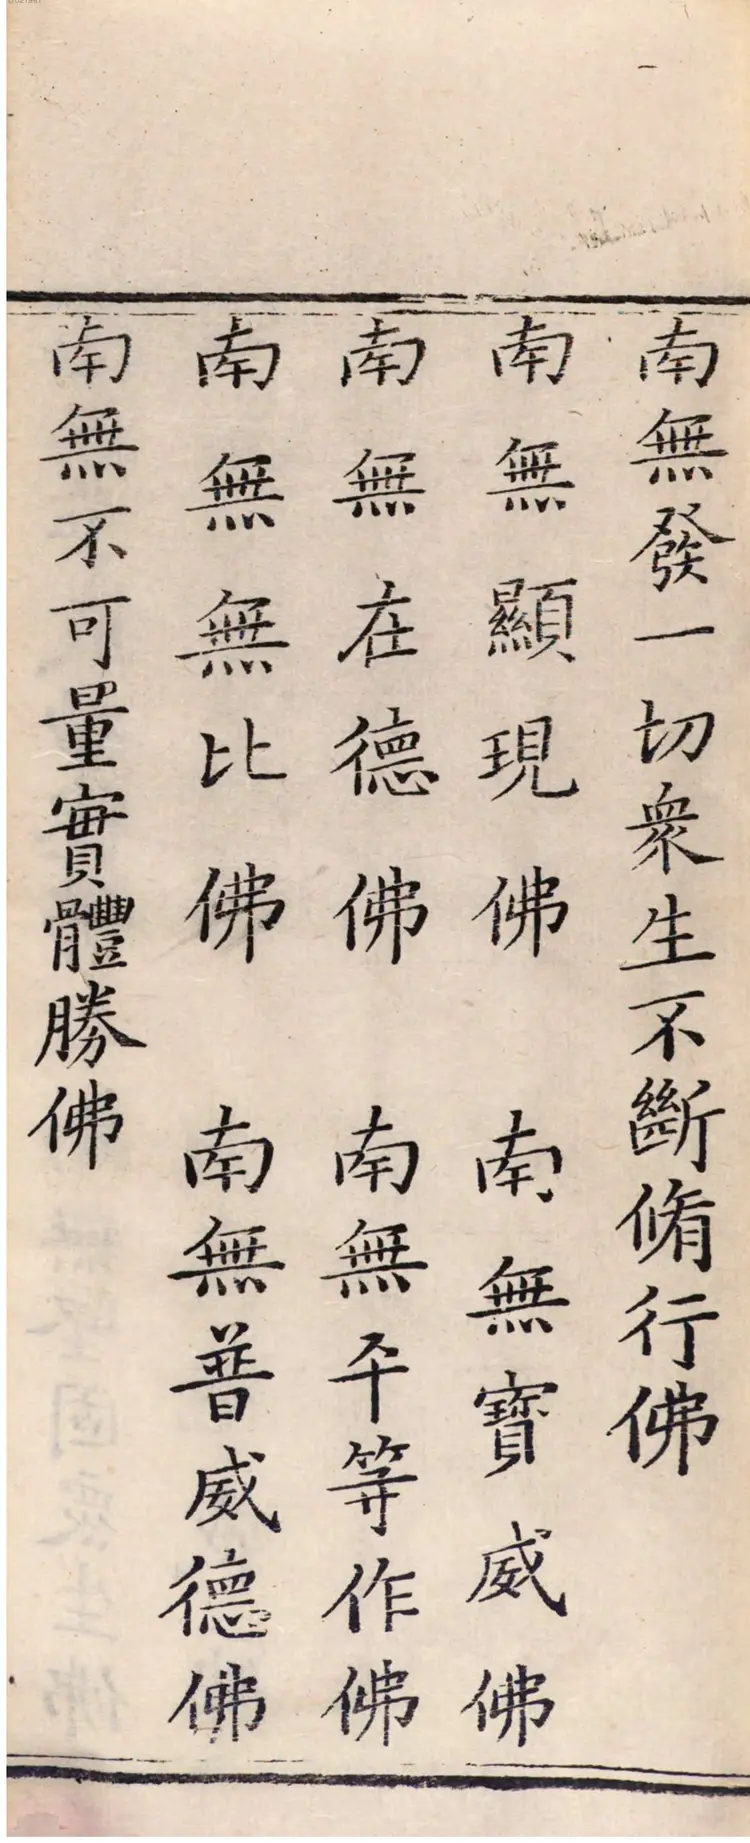 南無發一切衆生不斷脩行佛
南無顯現佛 南無寶威佛
南無在德佛 南無平等作佛
南無無比佛 南無普威德佛
南無不可量實體勝佛